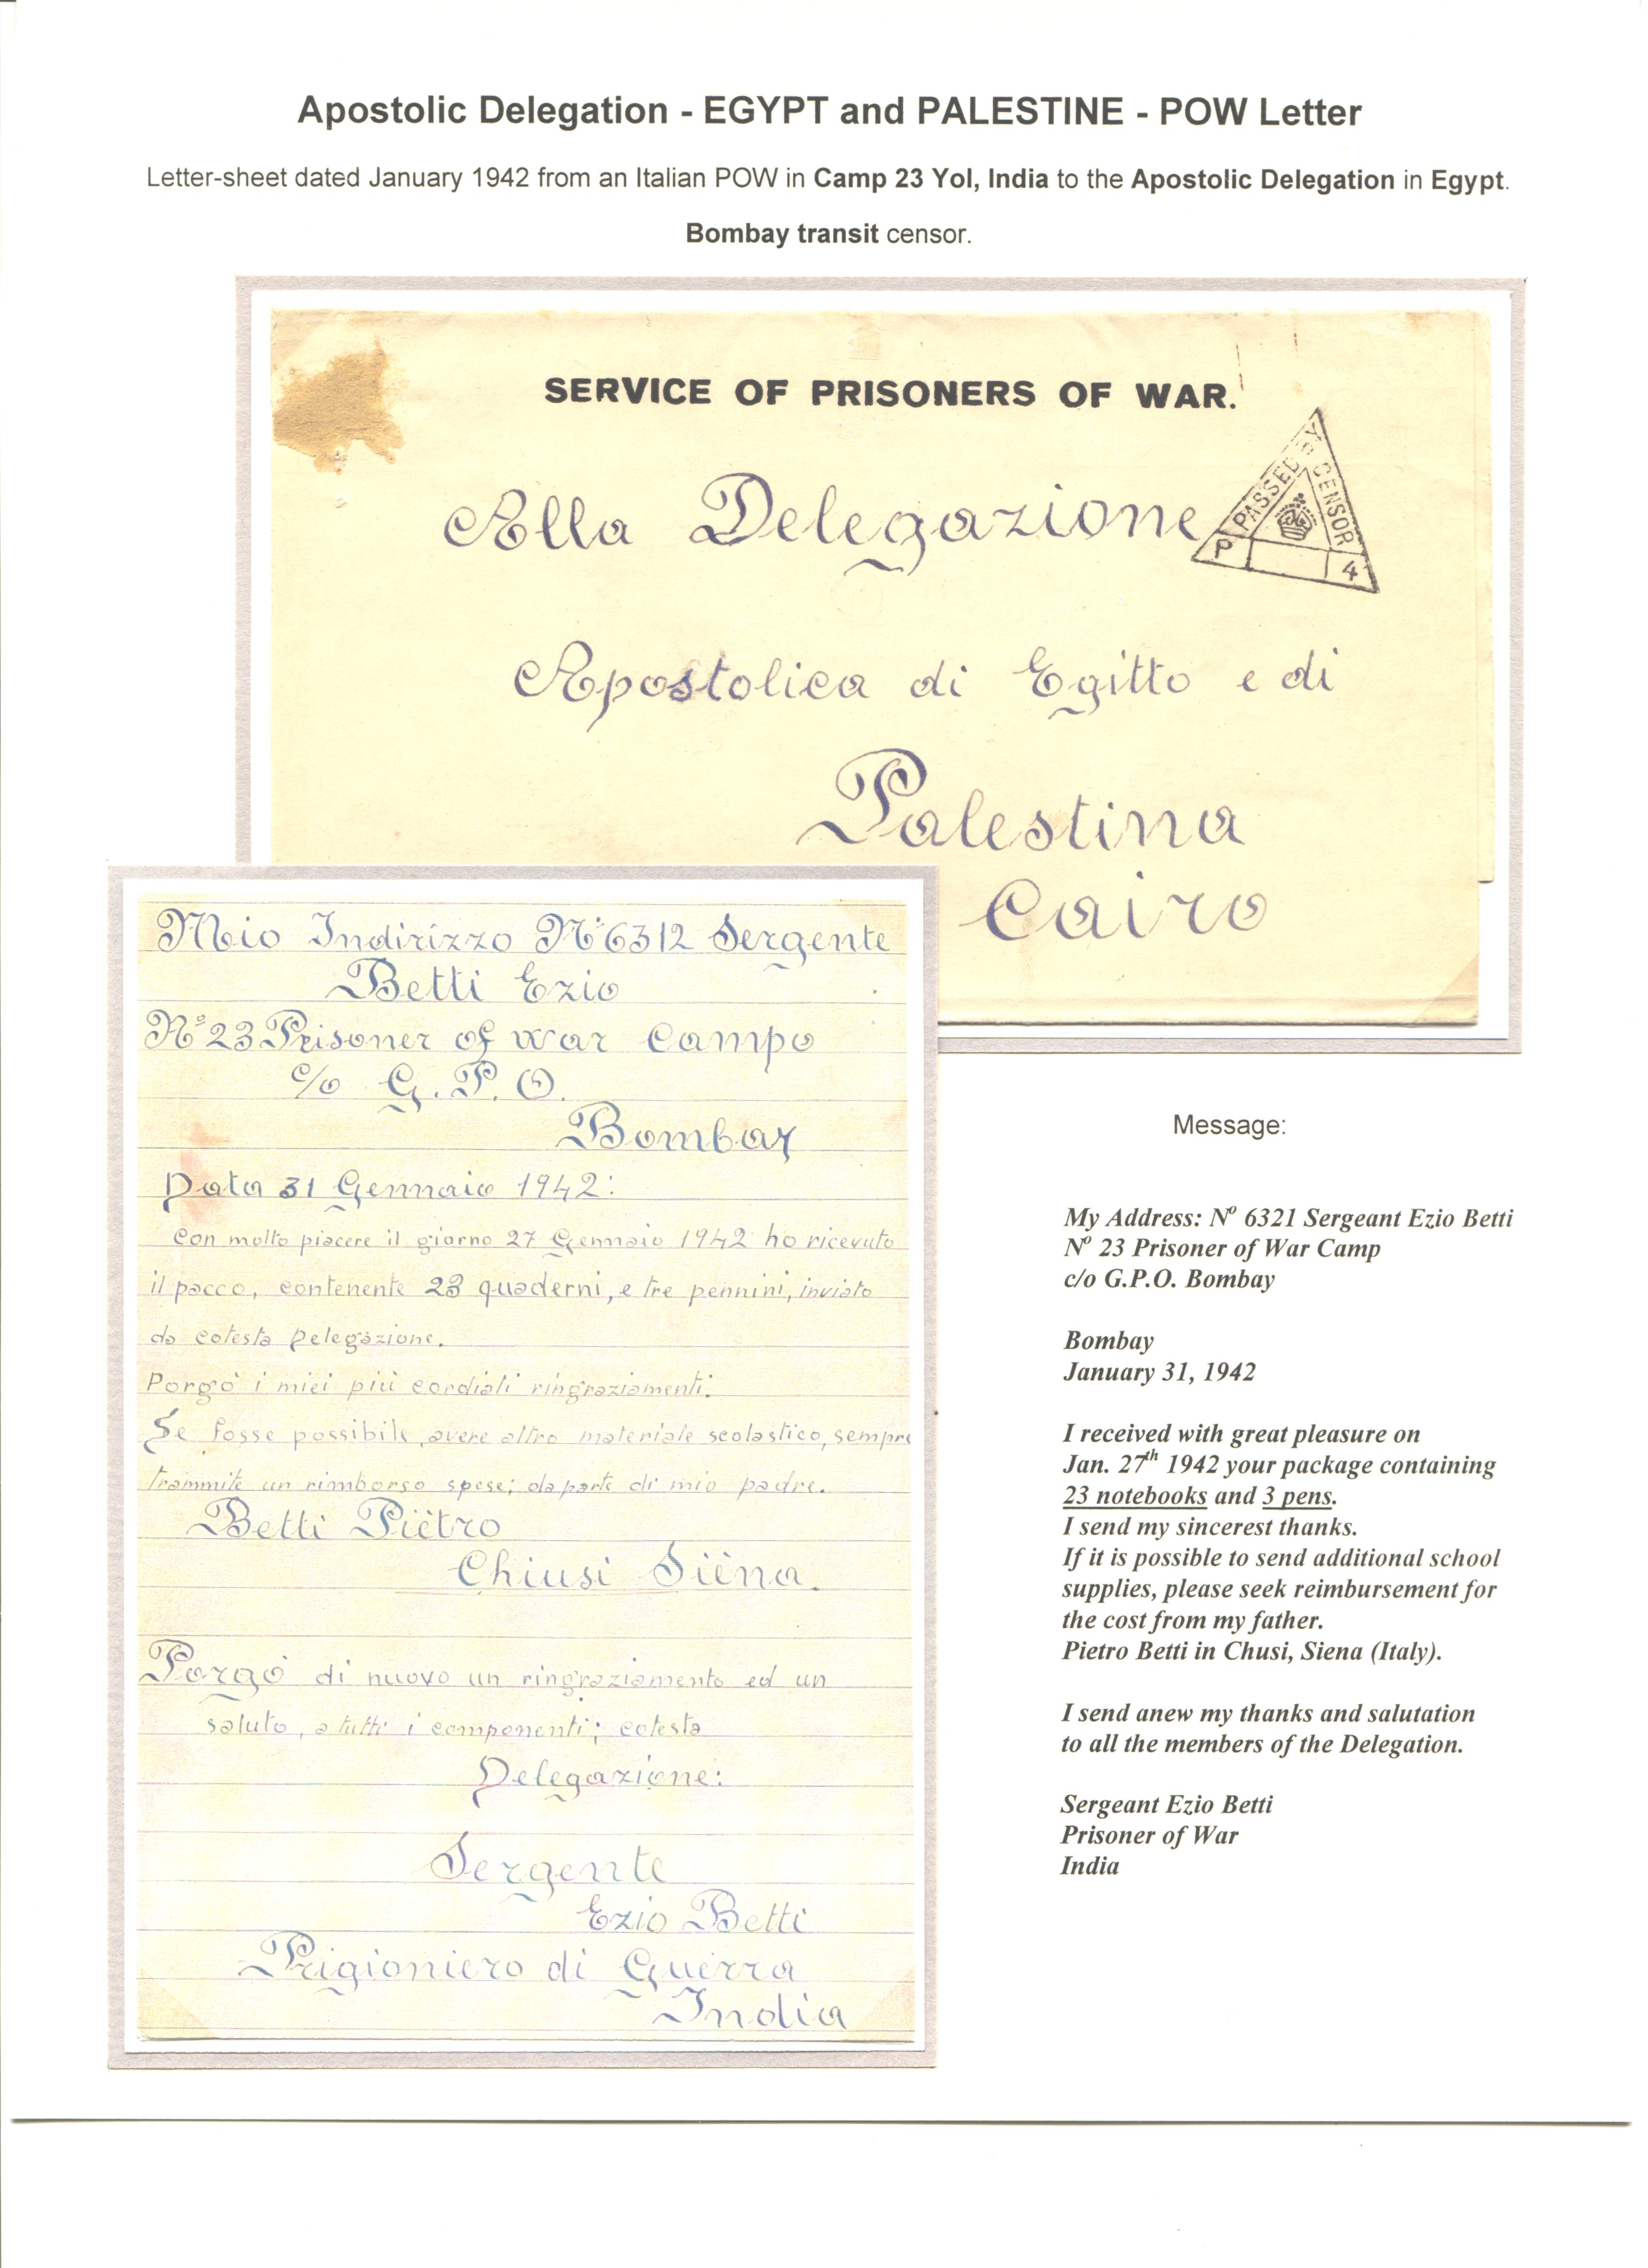 Apostolic Delegation - EGYPT and PALESTINE - POW Letter
Letter-sheet dated January 1942 from an Italian POW in Camp 23 Yol, India to the Apostolic Delegation in Egypt.
Bombay transit censor.
SERVICE OF PRISONERS OF WAR.
PASSED BY CENSOR
P 4
Alla Delegazione
Apostolica di Egitto e di
Palestina
Cairo
Mio Indirizzo N° 6312 Sergente
Betti Ezio
N° 23 Prisoner of war Campo
c/o G. P. O.
Bombay
Data 31 Gennaio 1942:
Con molto piacere il giorno 27 Gennaio 1942 ho ricevuto
il pacco, contenente 23 quaderni, e tre pennini, inviato
da cotesta Delegazione.
Porgo i miei più cordiali ringraziamenti.
Se fosse possibile, avere altro materiale scolastico, sempre
trammite un rimborso spese; da parte di mio padre.
Betti Piètro
Chiusi Sièna.
Porgo di nuovo un ringraziamento ed un
saluto, a tutti i componenti; cotesta
Delegazione:
Sergente
Ezio Betti
Prigioniero di Guerra
India
Message:
My Address: Nº 6321 Sergeant Ezio Betti
Nº 23 Prisoner of War Camp
c/o G.P.O. Bombay
Bombay
January 31, 1942
I received with great pleasure on
Jan. 27th 1942 your package containing
23 notebooks and 3 pens.
I send my sincerest thanks.
If it is possible to send additional school
supplies, please seek reimbursement for
the cost from my father.
Pietro Betti in Chusi, Siena (Italy).
I send anew my thanks and salutation
to all the members of the Delegation.
Sergeant Ezio Betti
Prisoner of War
India